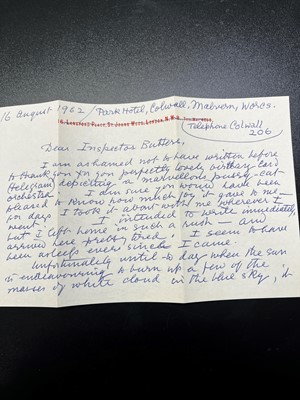 16 August 1962 / Park Hotel, Colwall, Malvern, Worcs.
16, Langford Place, St Johns Wood, London, N.W.8.
(Telephone Colwall
206)
Dear Inspector Butlers,
I am ashamed not to have written before
to thank you for your perfectly lovely birthday-card
(telegram) depicting a marvellous pussy-cat
orchestra. I am sure you would have been
pleased to know how much joy it gave to me—
for days I took it about with me wherever I
went. I intended to write immediately
but I left home in such a rush — and
arrived here pretty tired, I seem to have
been asleep ever since I came.
Unfortunately until to-day when the sun
is endeavouring to burn up a few of the
masses of white cloud in the blue sky, it